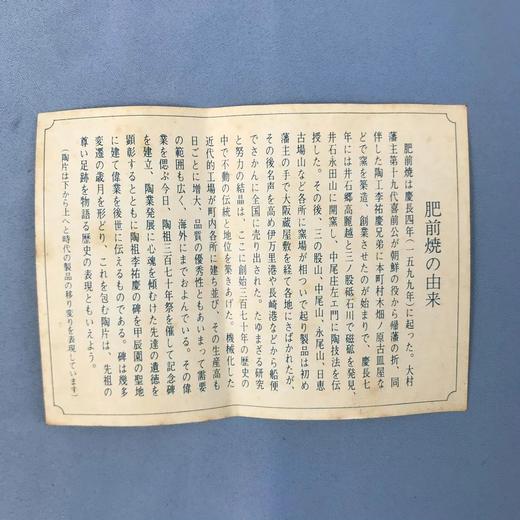 肥前焼の由来
肥前焼は慶長四年(一五九九年)に起った。大村
藩主第十九代喜前公が朝鮮の役から帰藩の折、同
伴した陶工李祐慶兄弟に本町村木畑ノ原古皿屋な
どで窯を築造、創業させたのが始まりで、慶長七
年には井石郷高麗越と三ノ股砥石川で磁礦を発見、
井石永田山に開窯し、中尾庄左エ門に陶技法を伝
授した。その後、三の股山、中尾山、永尾山、日恵
古場山など各所に窯場が相ついで起り製品は初め
藩主の手で大阪蔵屋敷を経て各地にさばかれたが、
その後名声を高め伊万里港や長崎港などから船便
でさかんに全国に売り出された。たゆまざる研究
と努力の結晶は、ここに創始三百七十年の歴史の
中で不動の伝統と地位を築きあげた。機械化した
近代的工場が町内各所に建ち並び、その生産高も
日ごとに増大、品質の優秀性ともあいまって需要
の範囲も広く、海外にまでおよんでいる。その偉
業を偲ぶ今日、陶祖三百七十年祭を催して記念碑
を建立、陶業発展に心魂を傾むけた先達の遺徳を
顕彰するとともに陶祖李祐慶の碑を甲辰園の聖地
に建て偉業を後世に伝えるものである。碑は幾多
変遷の歳月を形どり、これを包む陶片は、先祖の
尊い足跡を物語る歴史の表現ともいえよう。
(陶片は下から上へと時代の製品の移り変りを表現しています)